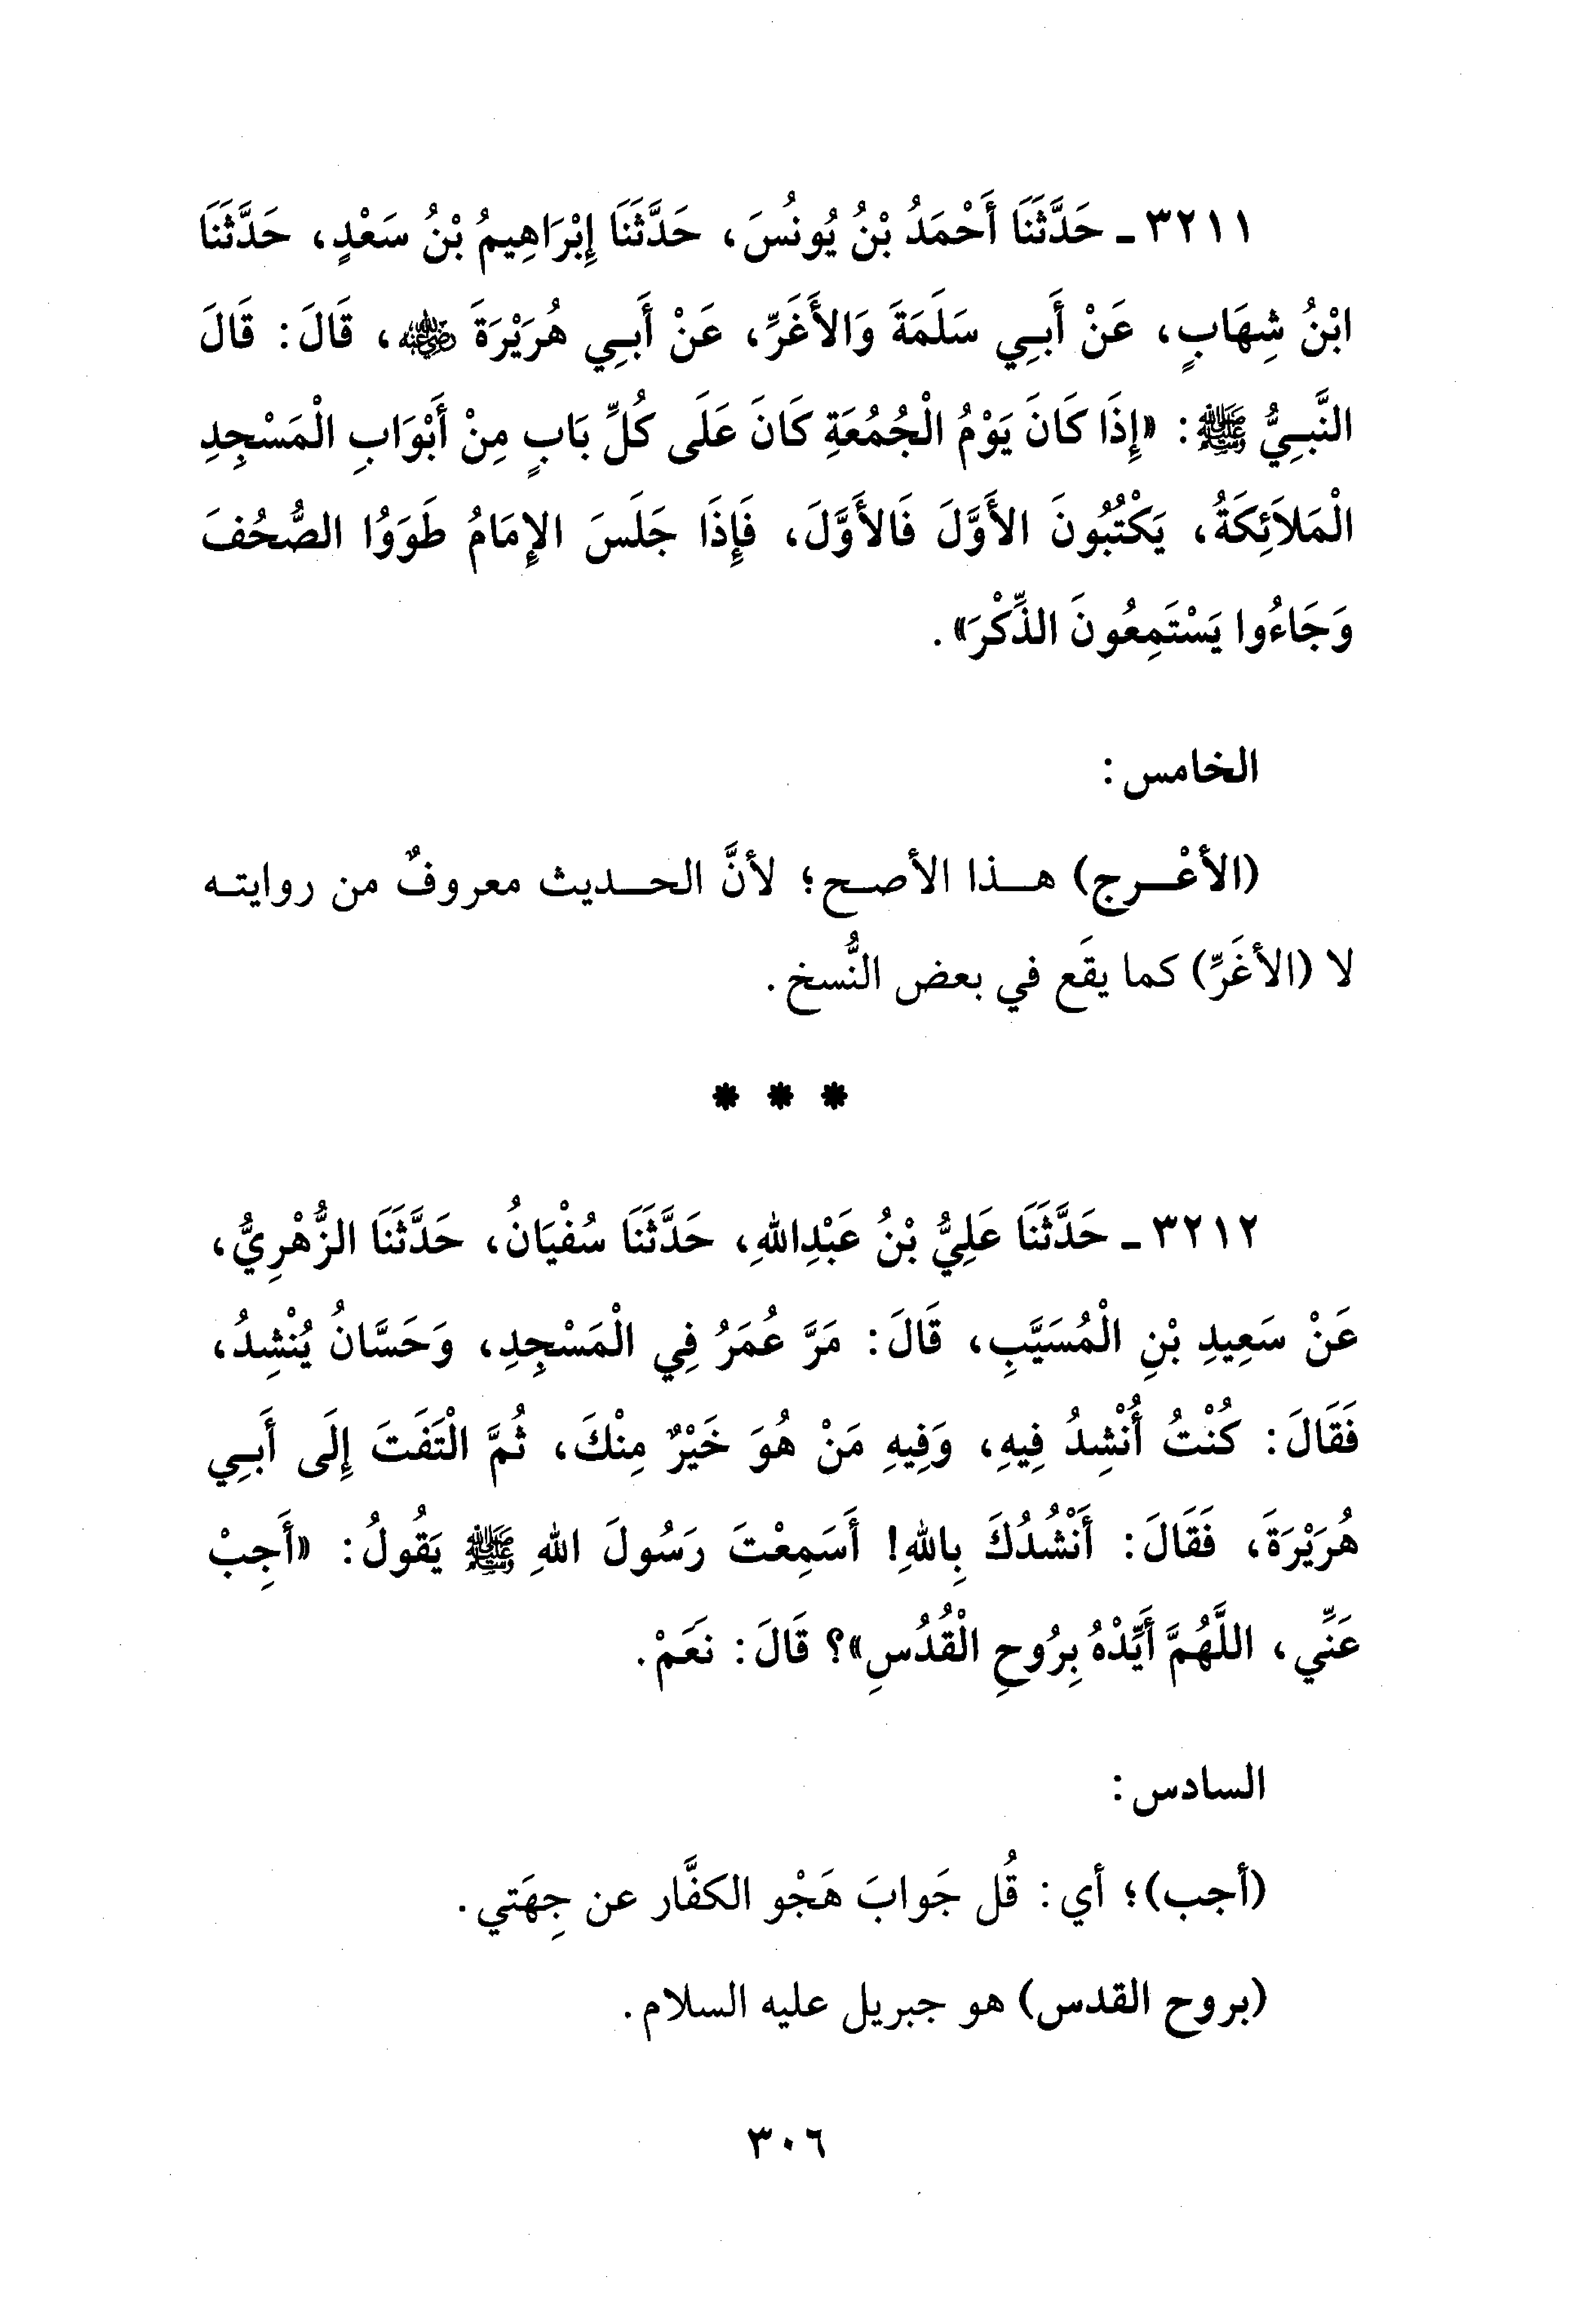 ٣٢١١ ـ حَدَّثَنَا أَحْمَدُ بْنُ يُونُسَ، حَدَّثَنَا إِبْرَاهِيمُ بْنُ سَعْدٍ، حَدَّثَنَا
ابْنُ شِهَابٍ، عَنْ أَبِي سَلَمَةَ وَالأَغَرِّ، عَنْ أَبِي هُرَيْرَةَ رضي الله عنه، قَالَ: قَالَ
النَّبِيُّ ﷺ: «إِذَا كَانَ يَوْمُ الْجُمُعَةِ كَانَ عَلَى كُلِّ بَابٍ مِنْ أَبْوَابِ الْمَسْجِدِ
الْمَلاَئِكَةُ، يَكْتُبُونَ الأَوَّلَ فَالأَوَّلَ، فَإِذَا جَلَسَ الإِمَامُ طَوَوُا الصُّحُفَ
وَجَاءُوا يَسْتَمِعُونَ الذِّكْرَ».
الخامس:
(الأعْرج) هذا الأصح؛ لأنَّ الحديث معروفٌ من روايته
لا (الأغَرِّ) كما يقَع في بعض النُّسخ.
* * *
٣٢١٢ ـ حَدَّثَنَا عَلِيُّ بْنُ عَبْدِاللهِ، حَدَّثَنَا سُفْيَانُ، حَدَّثَنَا الزُّهْرِيُّ،
عَنْ سَعِيدِ بْنِ الْمُسَيَّبِ، قَالَ: مَرَّ عُمَرُ فِي الْمَسْجِدِ، وَحَسَّانُ يُنْشِدُ،
فَقَالَ: كُنْتُ أُنْشِدُ فِيهِ، وَفِيهِ مَنْ هُوَ خَيْرٌ مِنْكَ، ثُمَّ الْتَفَتَ إِلَى أَبِي
هُرَيْرَةَ، فَقَالَ: أَنْشُدُكَ بِاللهِ! أَسَمِعْتَ رَسُولَ اللهِ ﷺ يَقُولُ: «أَجِبْ
عَنِّي، اللَّهُمَّ أَيِّدْهُ بِرُوحِ الْقُدُسِ»؟ قَالَ: نَعَمْ.
السادس:
(أجب)؛ أي: قُل جَوابَ هَجْو الكفَّار عن جِهَتي.
(بروح القدس) هو جبريل عليه السلام.
٣٠٦